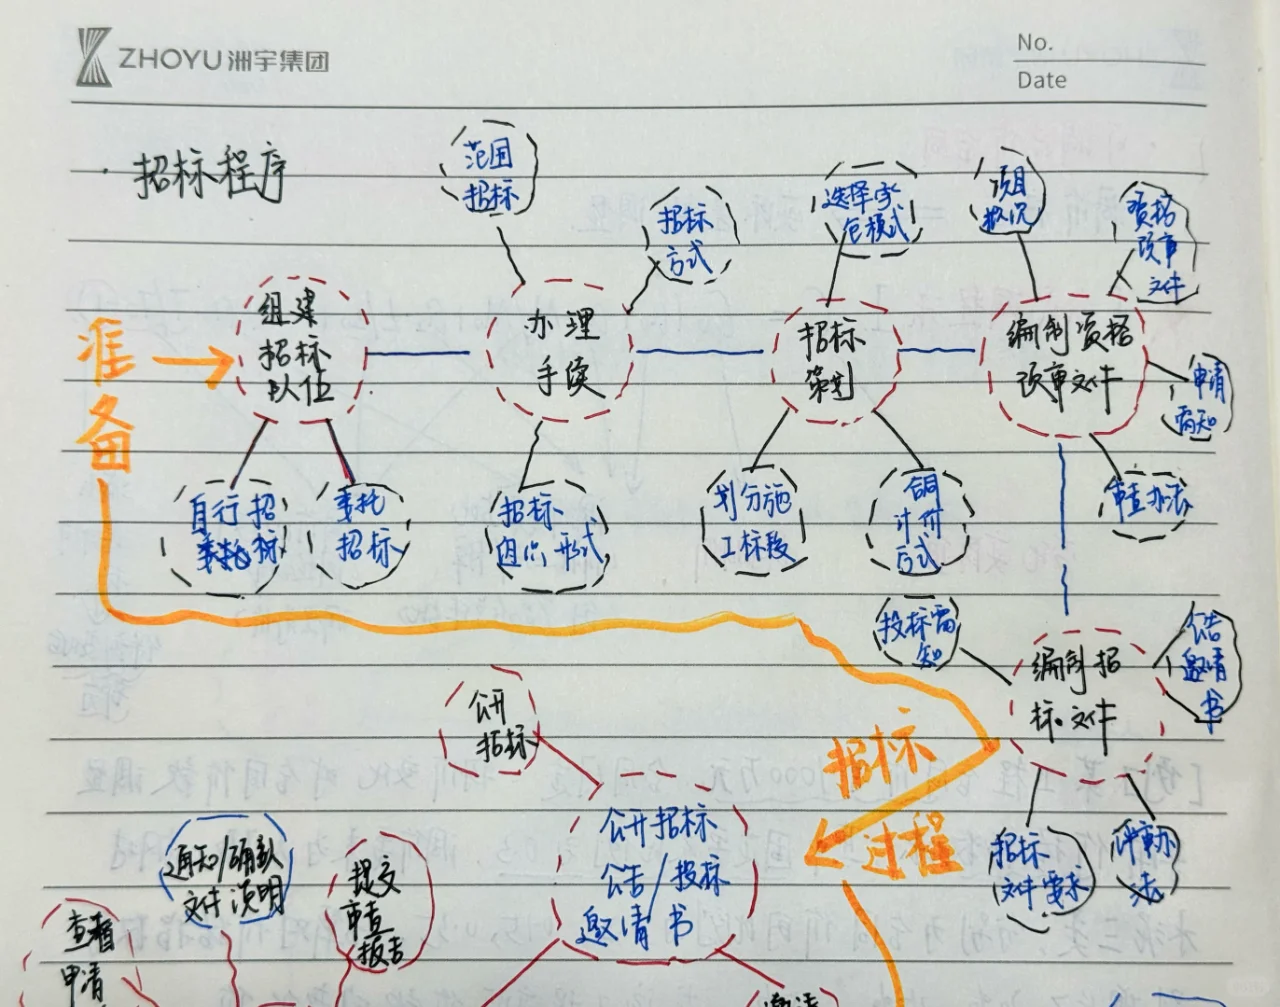 ZHOYU 洲宇集团
No.
Date
· 招标程序
范围
招标
招标
方式
选择
包模式
项目
概况
资格
预审
文件
准
备
组建
招标
队伍
办理
手续
招标
策划
编制资格
预审文件
申请
需知
自行招
标
委托
招标
招标
组织形式
划分施
工标段
合同
计价
方式
审查办法
投标需
知
编制招
标文件
公告
邀请
书
公开
招标
招标
过程
公开招标
公告/投标
邀请书
招标
文件要求
评审办
法
通知/确认
文件说明
提交
审查
报告
查看
申请
邀请